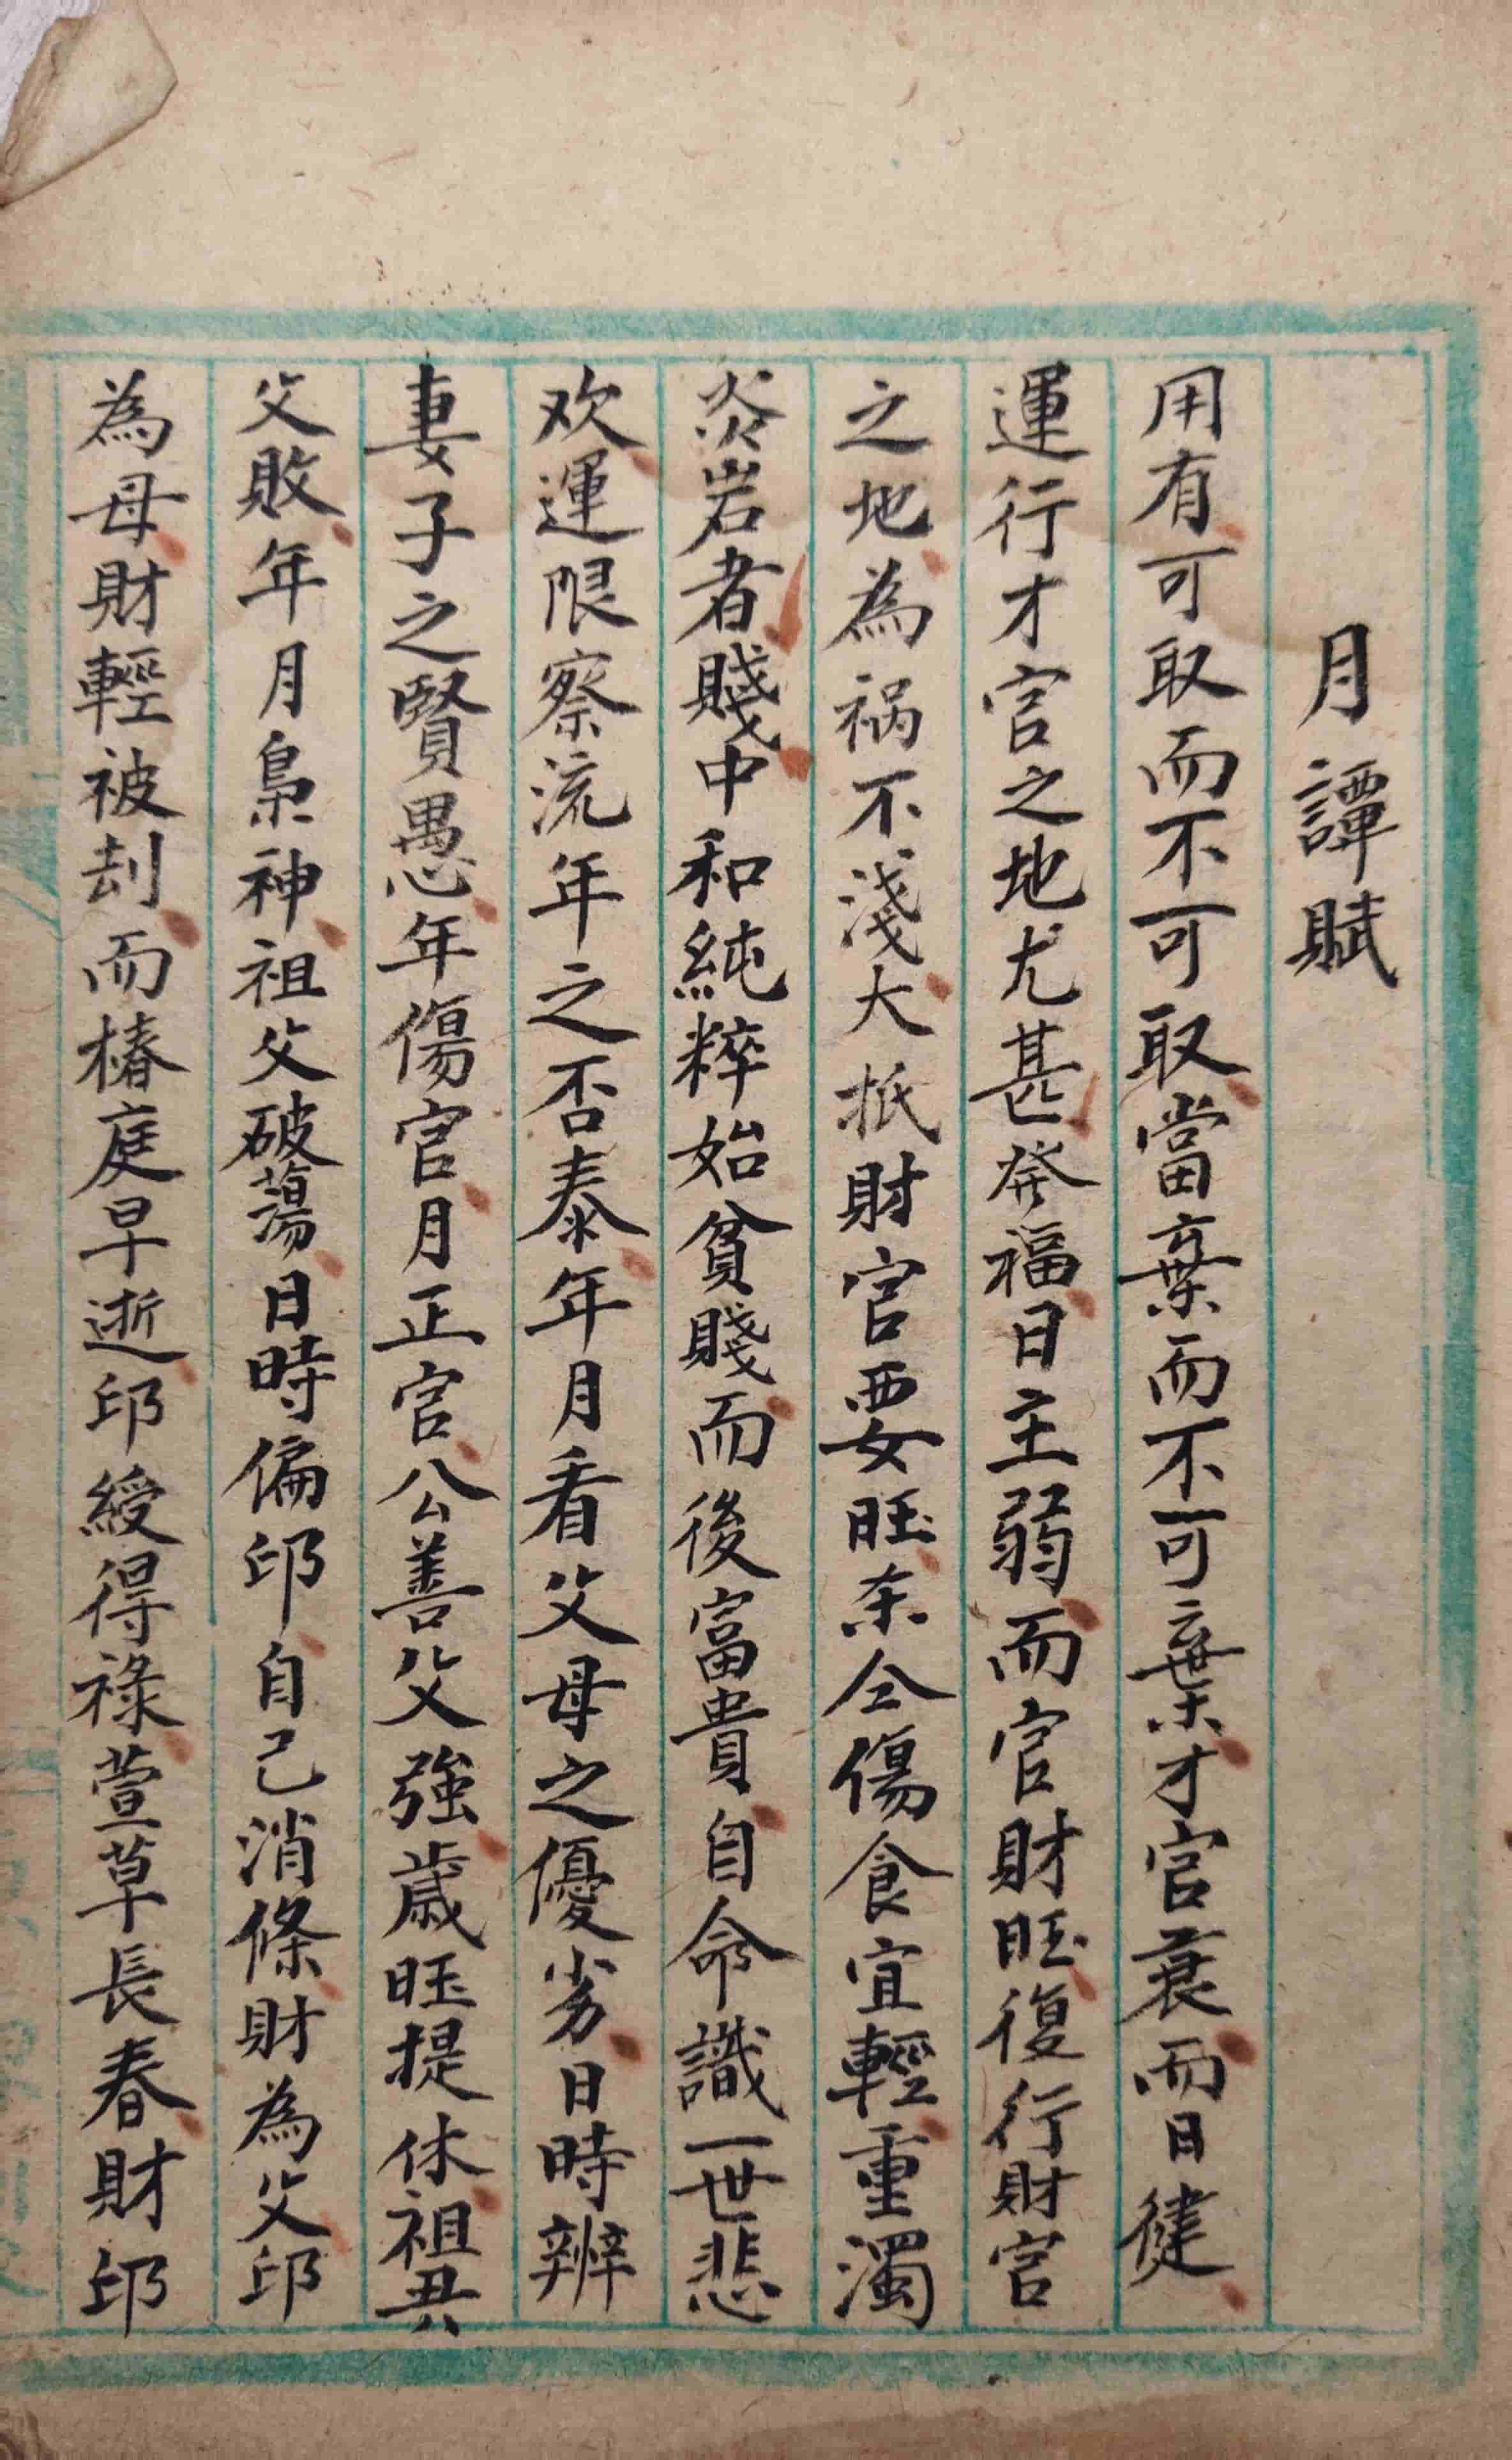 月譚賦
用有可取而不可取當棄而不可棄才官衰而日健
運行才官之地尤甚発福日主弱而官財旺復行財官
之地為祸不淺大抵財官要旺奈仝傷食宜輕重濁
炎岩者賤中和純粹始貧賤而後富貴自命識一世悲
欢運限察流年之否泰年月看父母之優劣日時辨
妻子之賢愚年傷官月正官公善父強歲旺提休祖興
父敗年月梟神祖父破蕩日時偏印自己消條財為父印
為母財輕被刦而椿庭早逝印綬得祿萱草長春財印